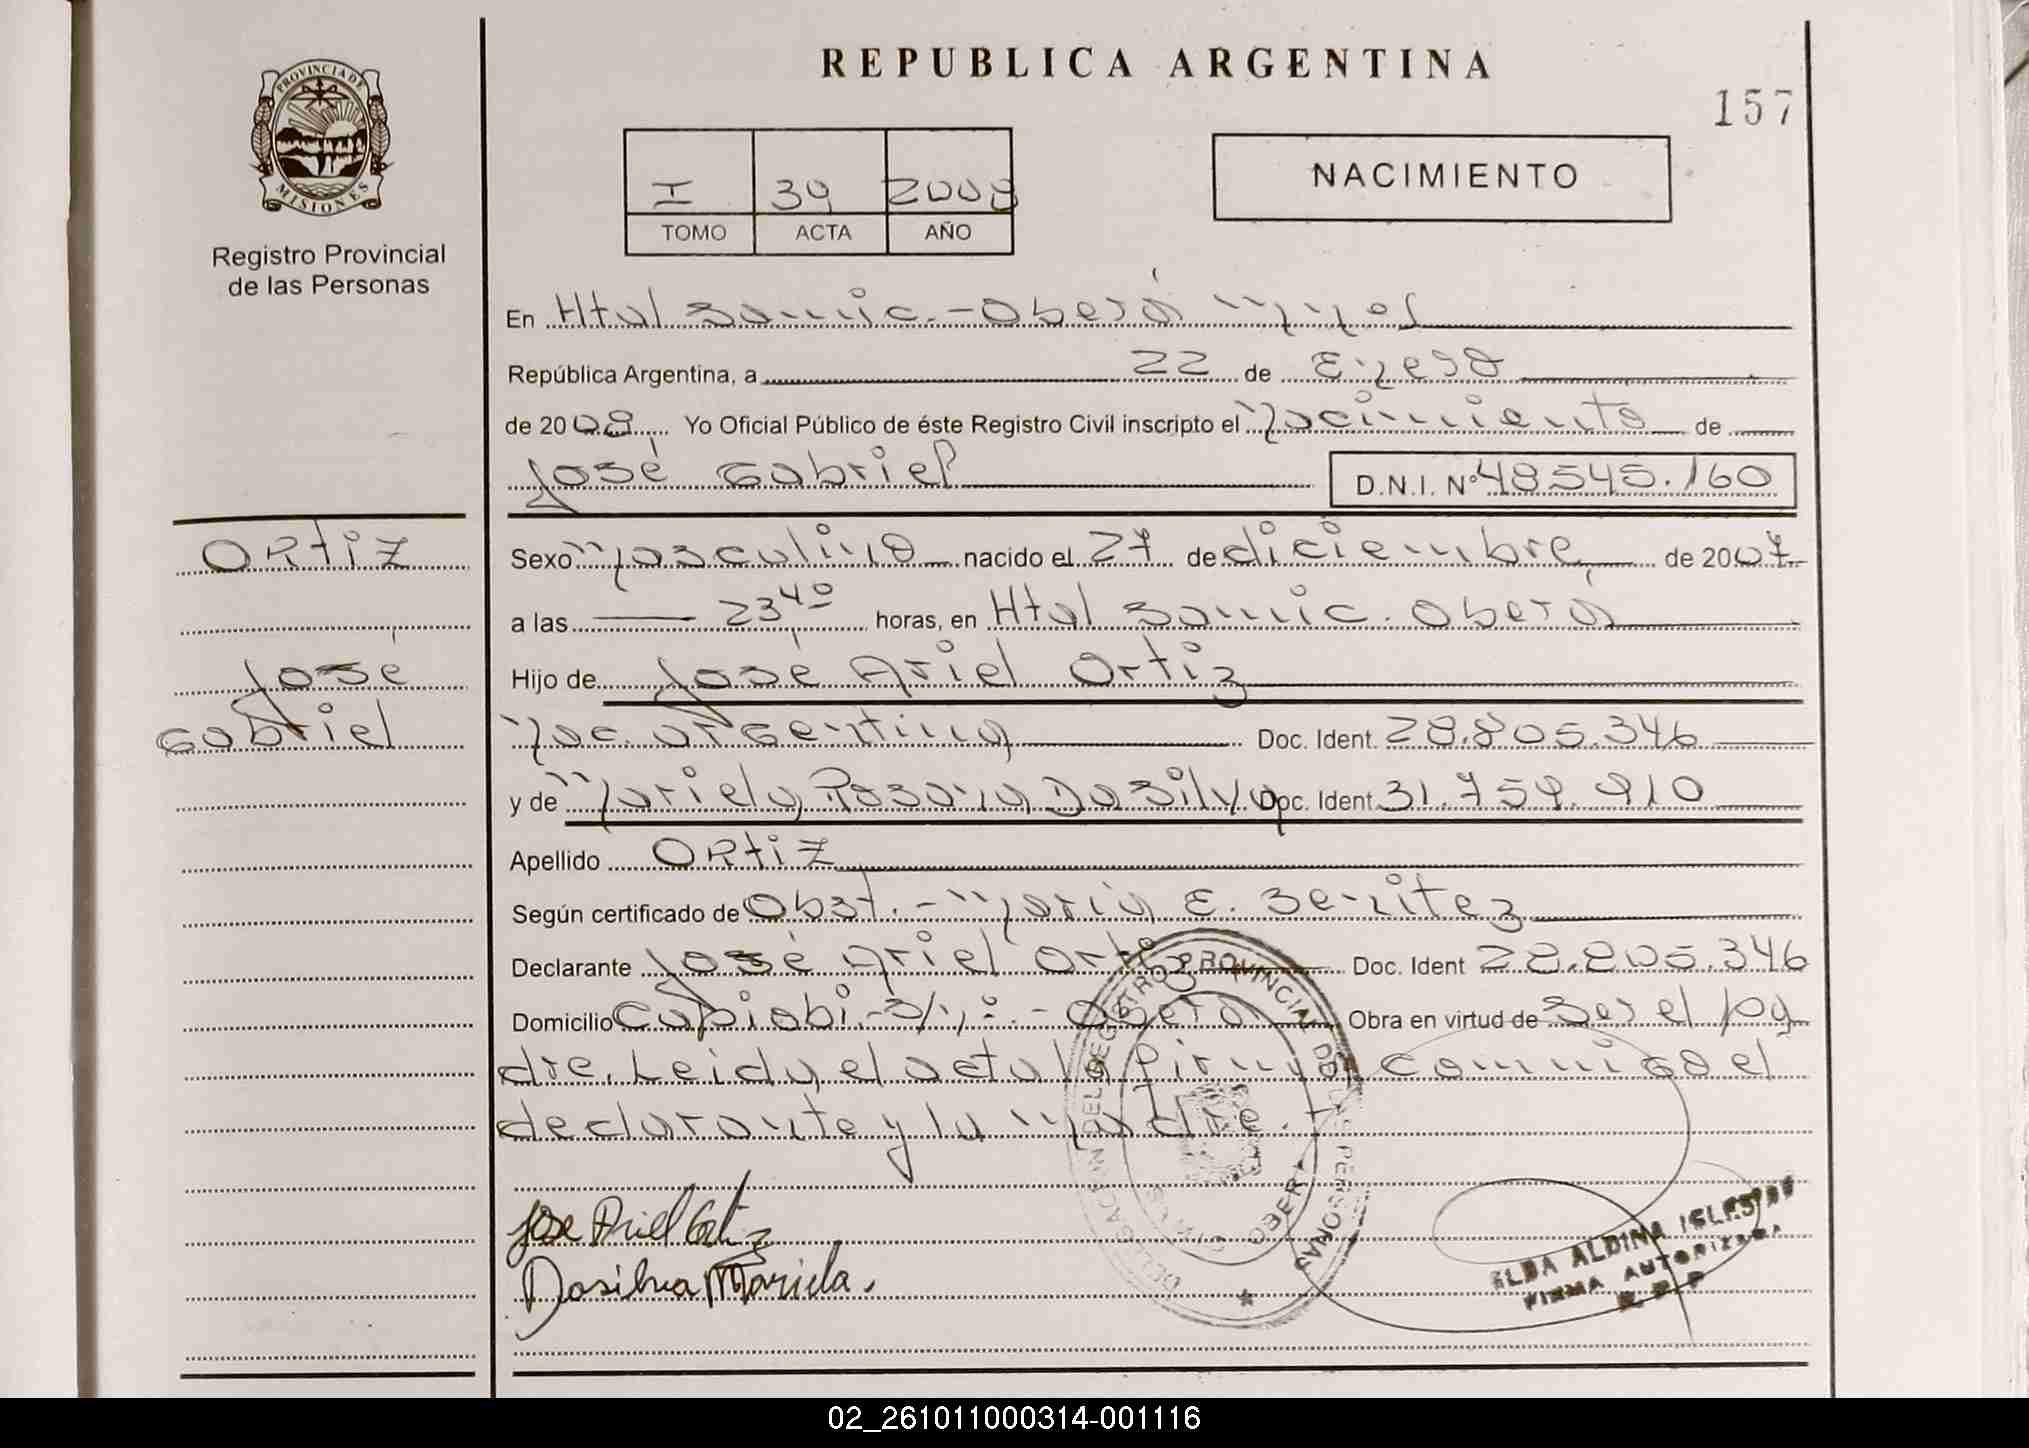 REPUBLICA ARGENTINA
157
PROVINCIA DE
MISIONES
Registro Provincial
de las Personas
I 39 2008
TOMO ACTA AÑO
NACIMIENTO
En Htal Samic.-Oberá Mnes
República Argentina, a 22 de Enero
de 2008. Yo Oficial Público de éste Registro Civil inscripto el Nacimiento de
José Gabriel D.N.I. Nº 48.545.160
ORtiz
José
Gabriel
Sexo Masculino nacido el 27 de diciembre de 2007
a las 23 40 horas, en Htal Samic. Oberá
Hijo de José Ariel Ortiz
Nac. argentina Doc. Ident. 28.805.346
y de Mariela Rosana Da Silva Doc. Ident. 31.759.910
Apellido ORtiz
Según certificado de Obst.-María E. Benitez
Declarante José Ariel Ortiz Doc. Ident 28.805.346
Domicilio Capiobi.-S/n:.-Oberá Obra en virtud de Ser el pa
dre. Leida el acta la firman conmigo el
declarante y la Madre.
Jose Ariel Ortiz
Dasilva Mariela.
DELEGACION DEL REGISTRO PROVINCIAL DE LAS PERSONAS
OBERA
ELBA ALDINA IGLESIAS
FIRMA AUTORIZADA
R.P.P
02_261011000314-001116